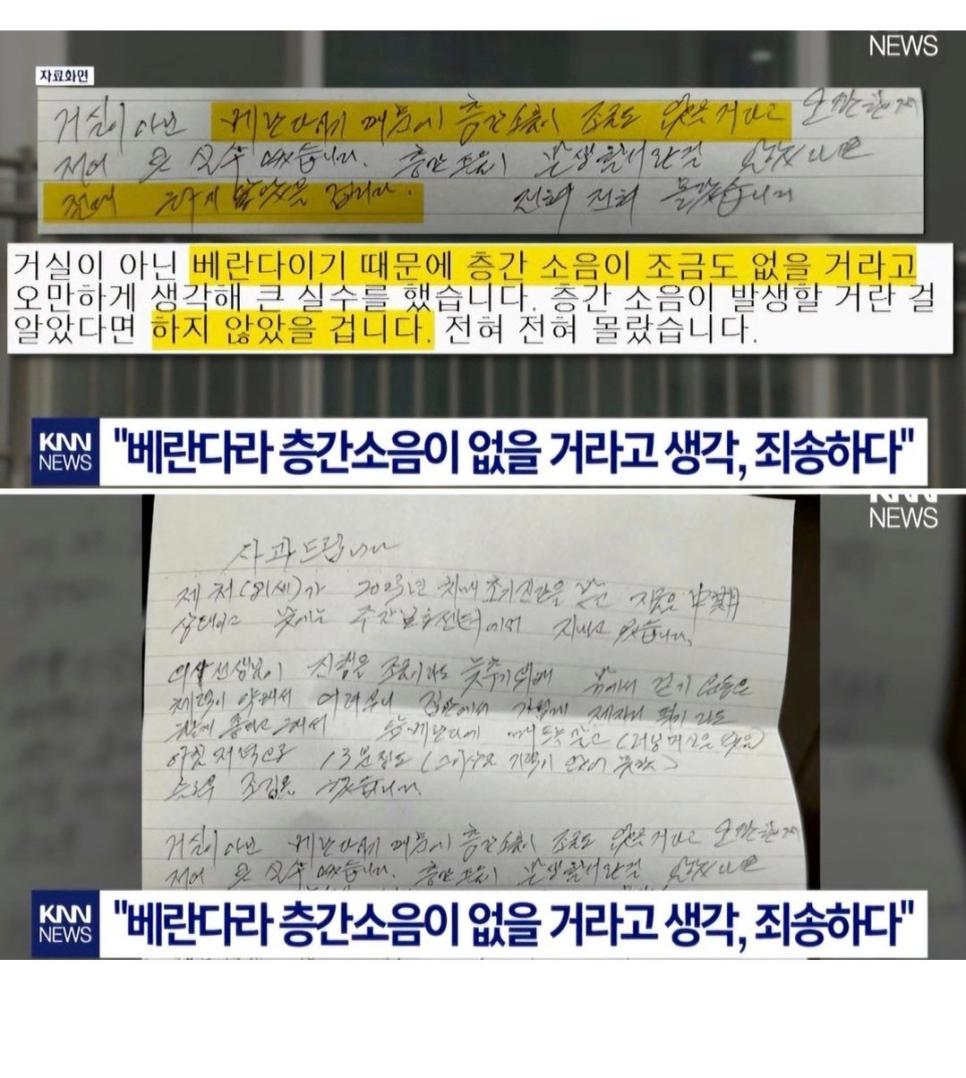 NEWS
자료화면
거실이 아닌 베란다이기 때문에 층간소음이 조금도 없을 거라고 오만한 생각에
큰 실수 했습니다. 층간 소음이 발생할 거란 걸 알았다면
절대 하지 않았을 겁니다. 전혀 전혀 몰랐습니다
거실이 아닌 베란다이기 때문에 층간 소음이 조금도 없을 거라고
오만하게 생각해 큰 실수를 했습니다. 층간 소음이 발생할 거란 걸
알았다면 하지 않았을 겁니다. 전혀 전혀 몰랐습니다.
KNN
NEWS
"베란다라 층간소음이 없을 거라고 생각, 죄송하다"
KNN
NEWS
사과드립니다
제 처(81세)가 치매 초기진단을 받고 지금은
상태이고 낮에는 주간보호센터에서 지내고 있습니다.
의사선생님이 진행을 조금이라도 늦추기 위해 밖에서 걷기 운동은
체력이 약해서 어려우니 집안에서 가볍게 제자리 뛰기라도
아침 저녁으로 13분 정도
조깅을 했습니다.
거실이 아닌 베란다이기 때문에 층간소음이 조금도 없을 거라고
큰 실수 했습니다. 층간 소음이 발생할 거란 걸 알았다면
KNN
NEWS
"베란다라 층간소음이 없을 거라고 생각, 죄송하다"